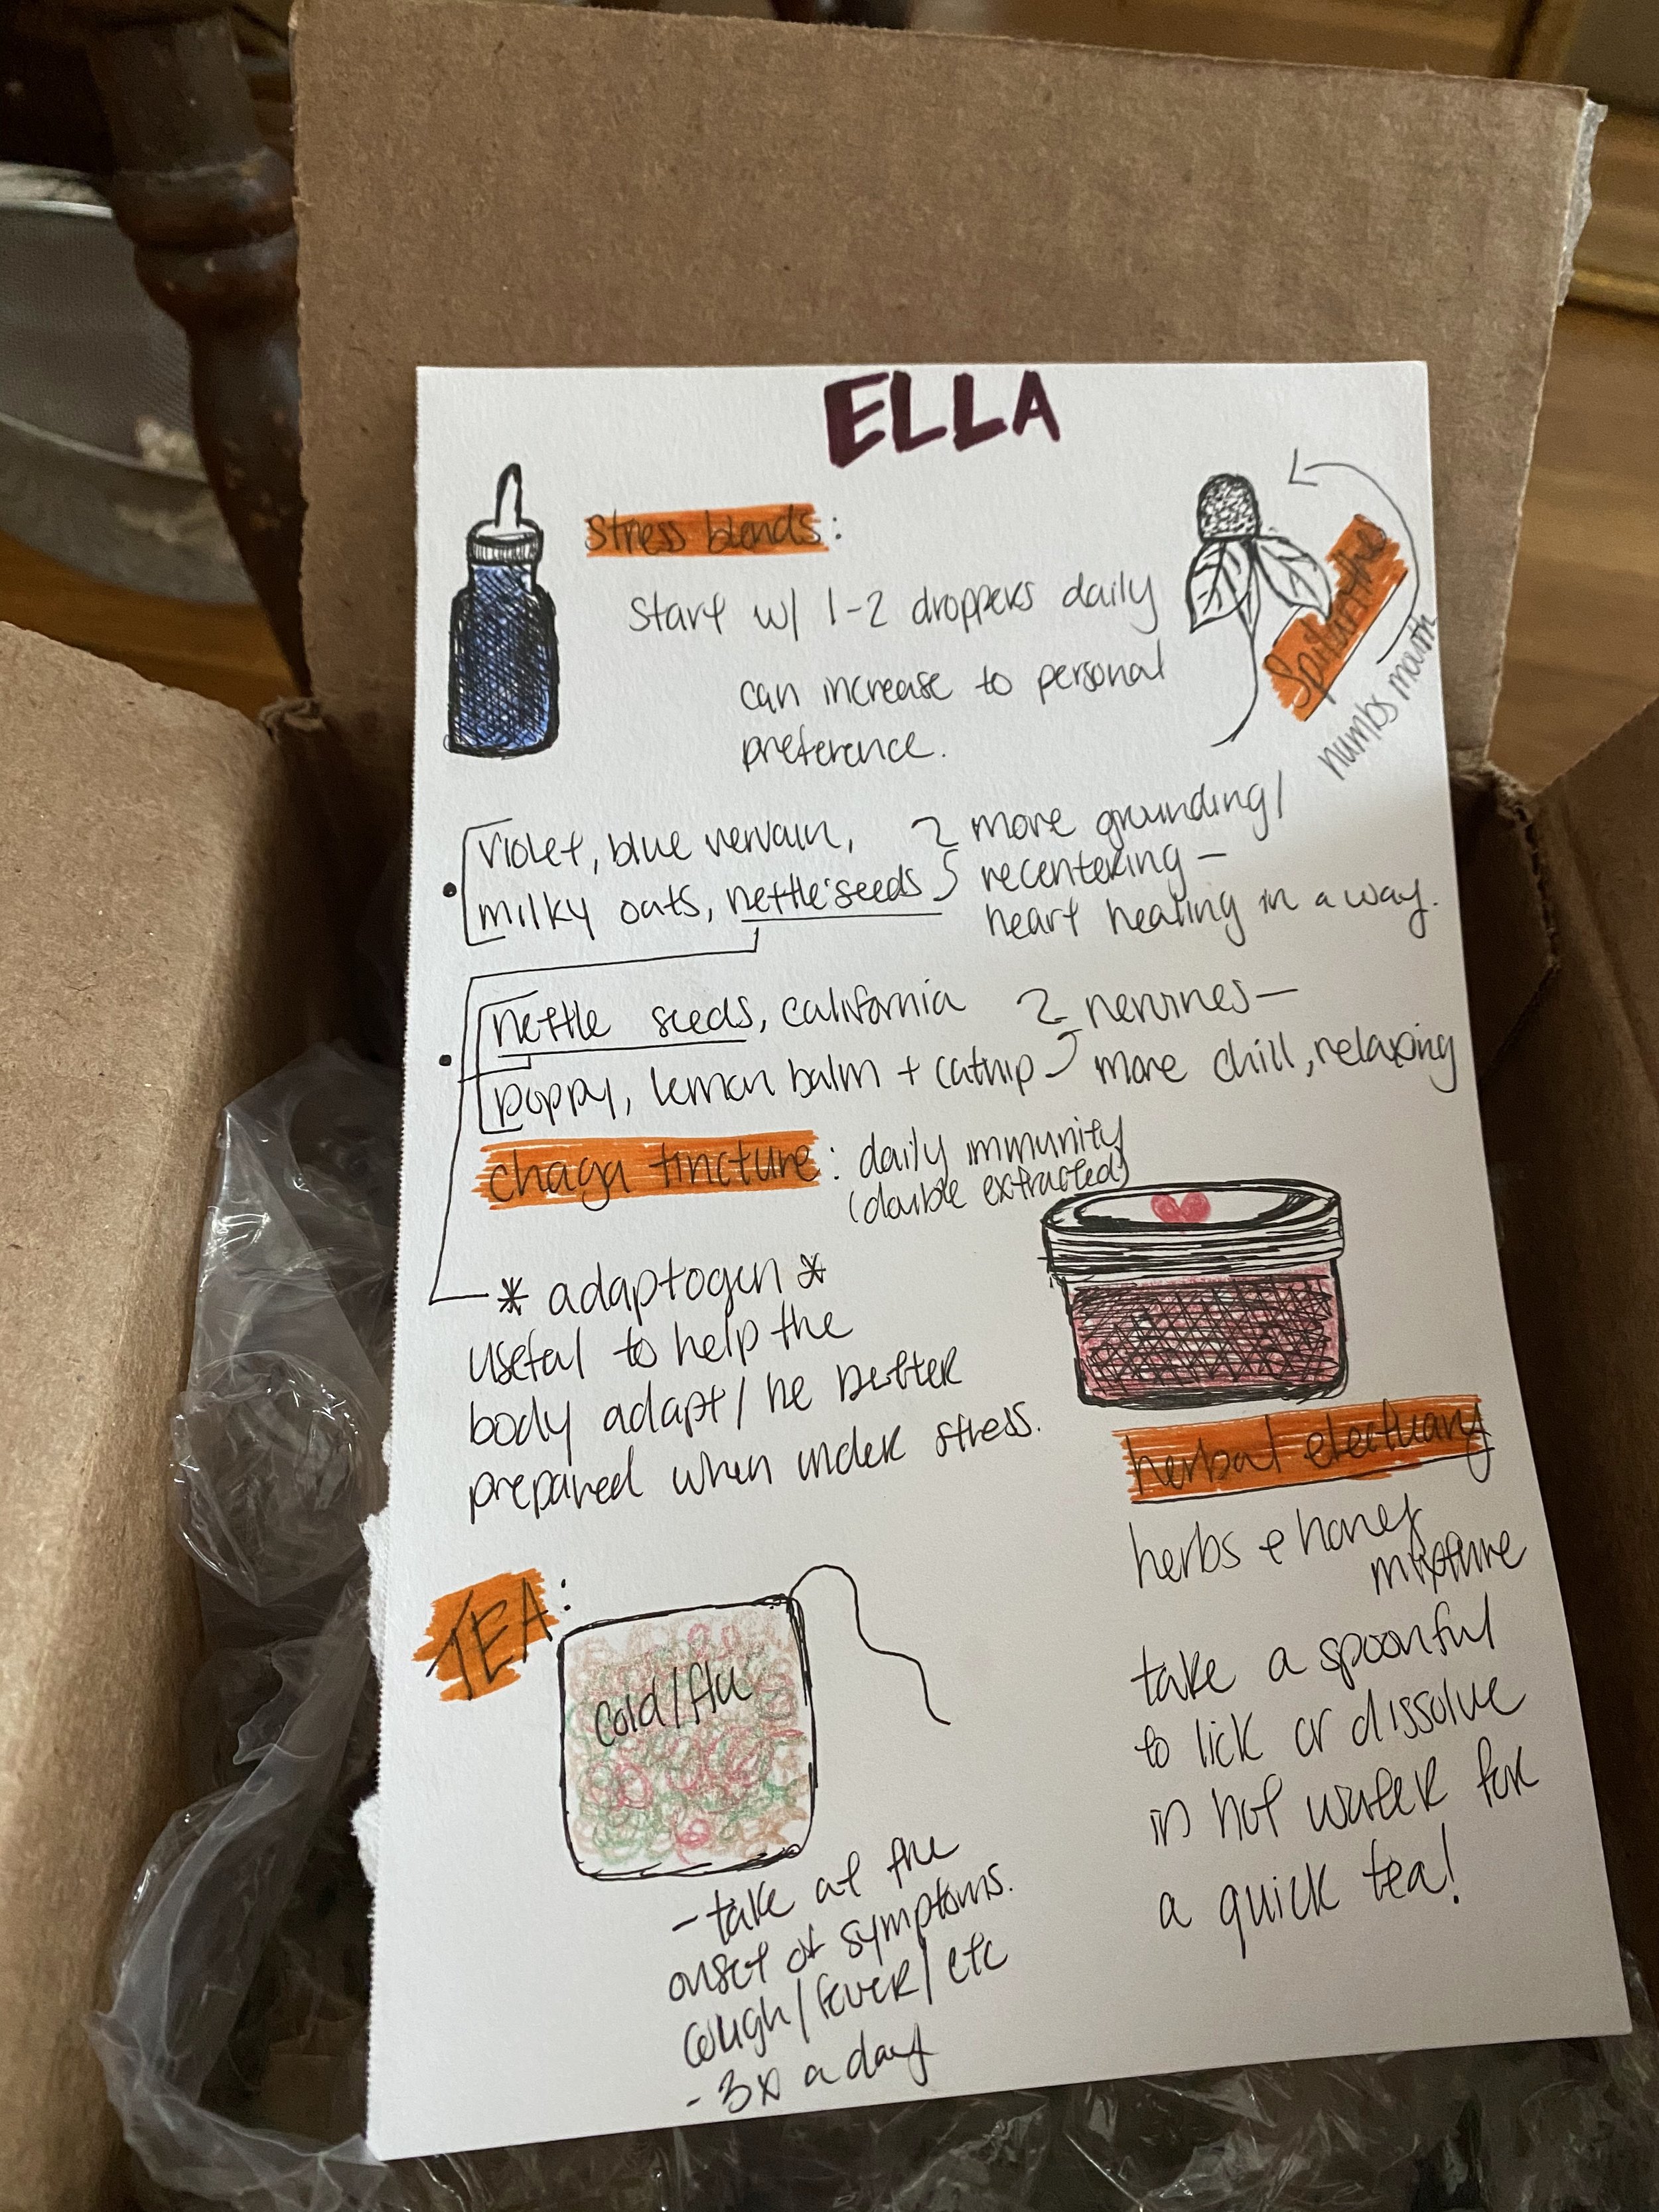 ELLA
stress blends:
start w/ 1-2 droppers daily
can increase to personal
preference.
Spilanthes
numbs mouth
violet, blue vervain,
milky oats, nettle seeds
more grounding/
recentering —
heart healing in a way.
nettle seeds, california
poppy, lemon balm + catnip
nervines —
more chill, relaxing
chaga tincture: daily immunity
(double extracted)
* adaptogen *
useful to help the
body adapt / be better
prepared when under stress.
herbal electuary
herbs & honey
mixture
take a spoonful
to lick or dissolve
in hot water for
a quick tea!
TEA:
cold/flu
- take at the
onset of symptoms.
cough/fever/etc
- 3x a day